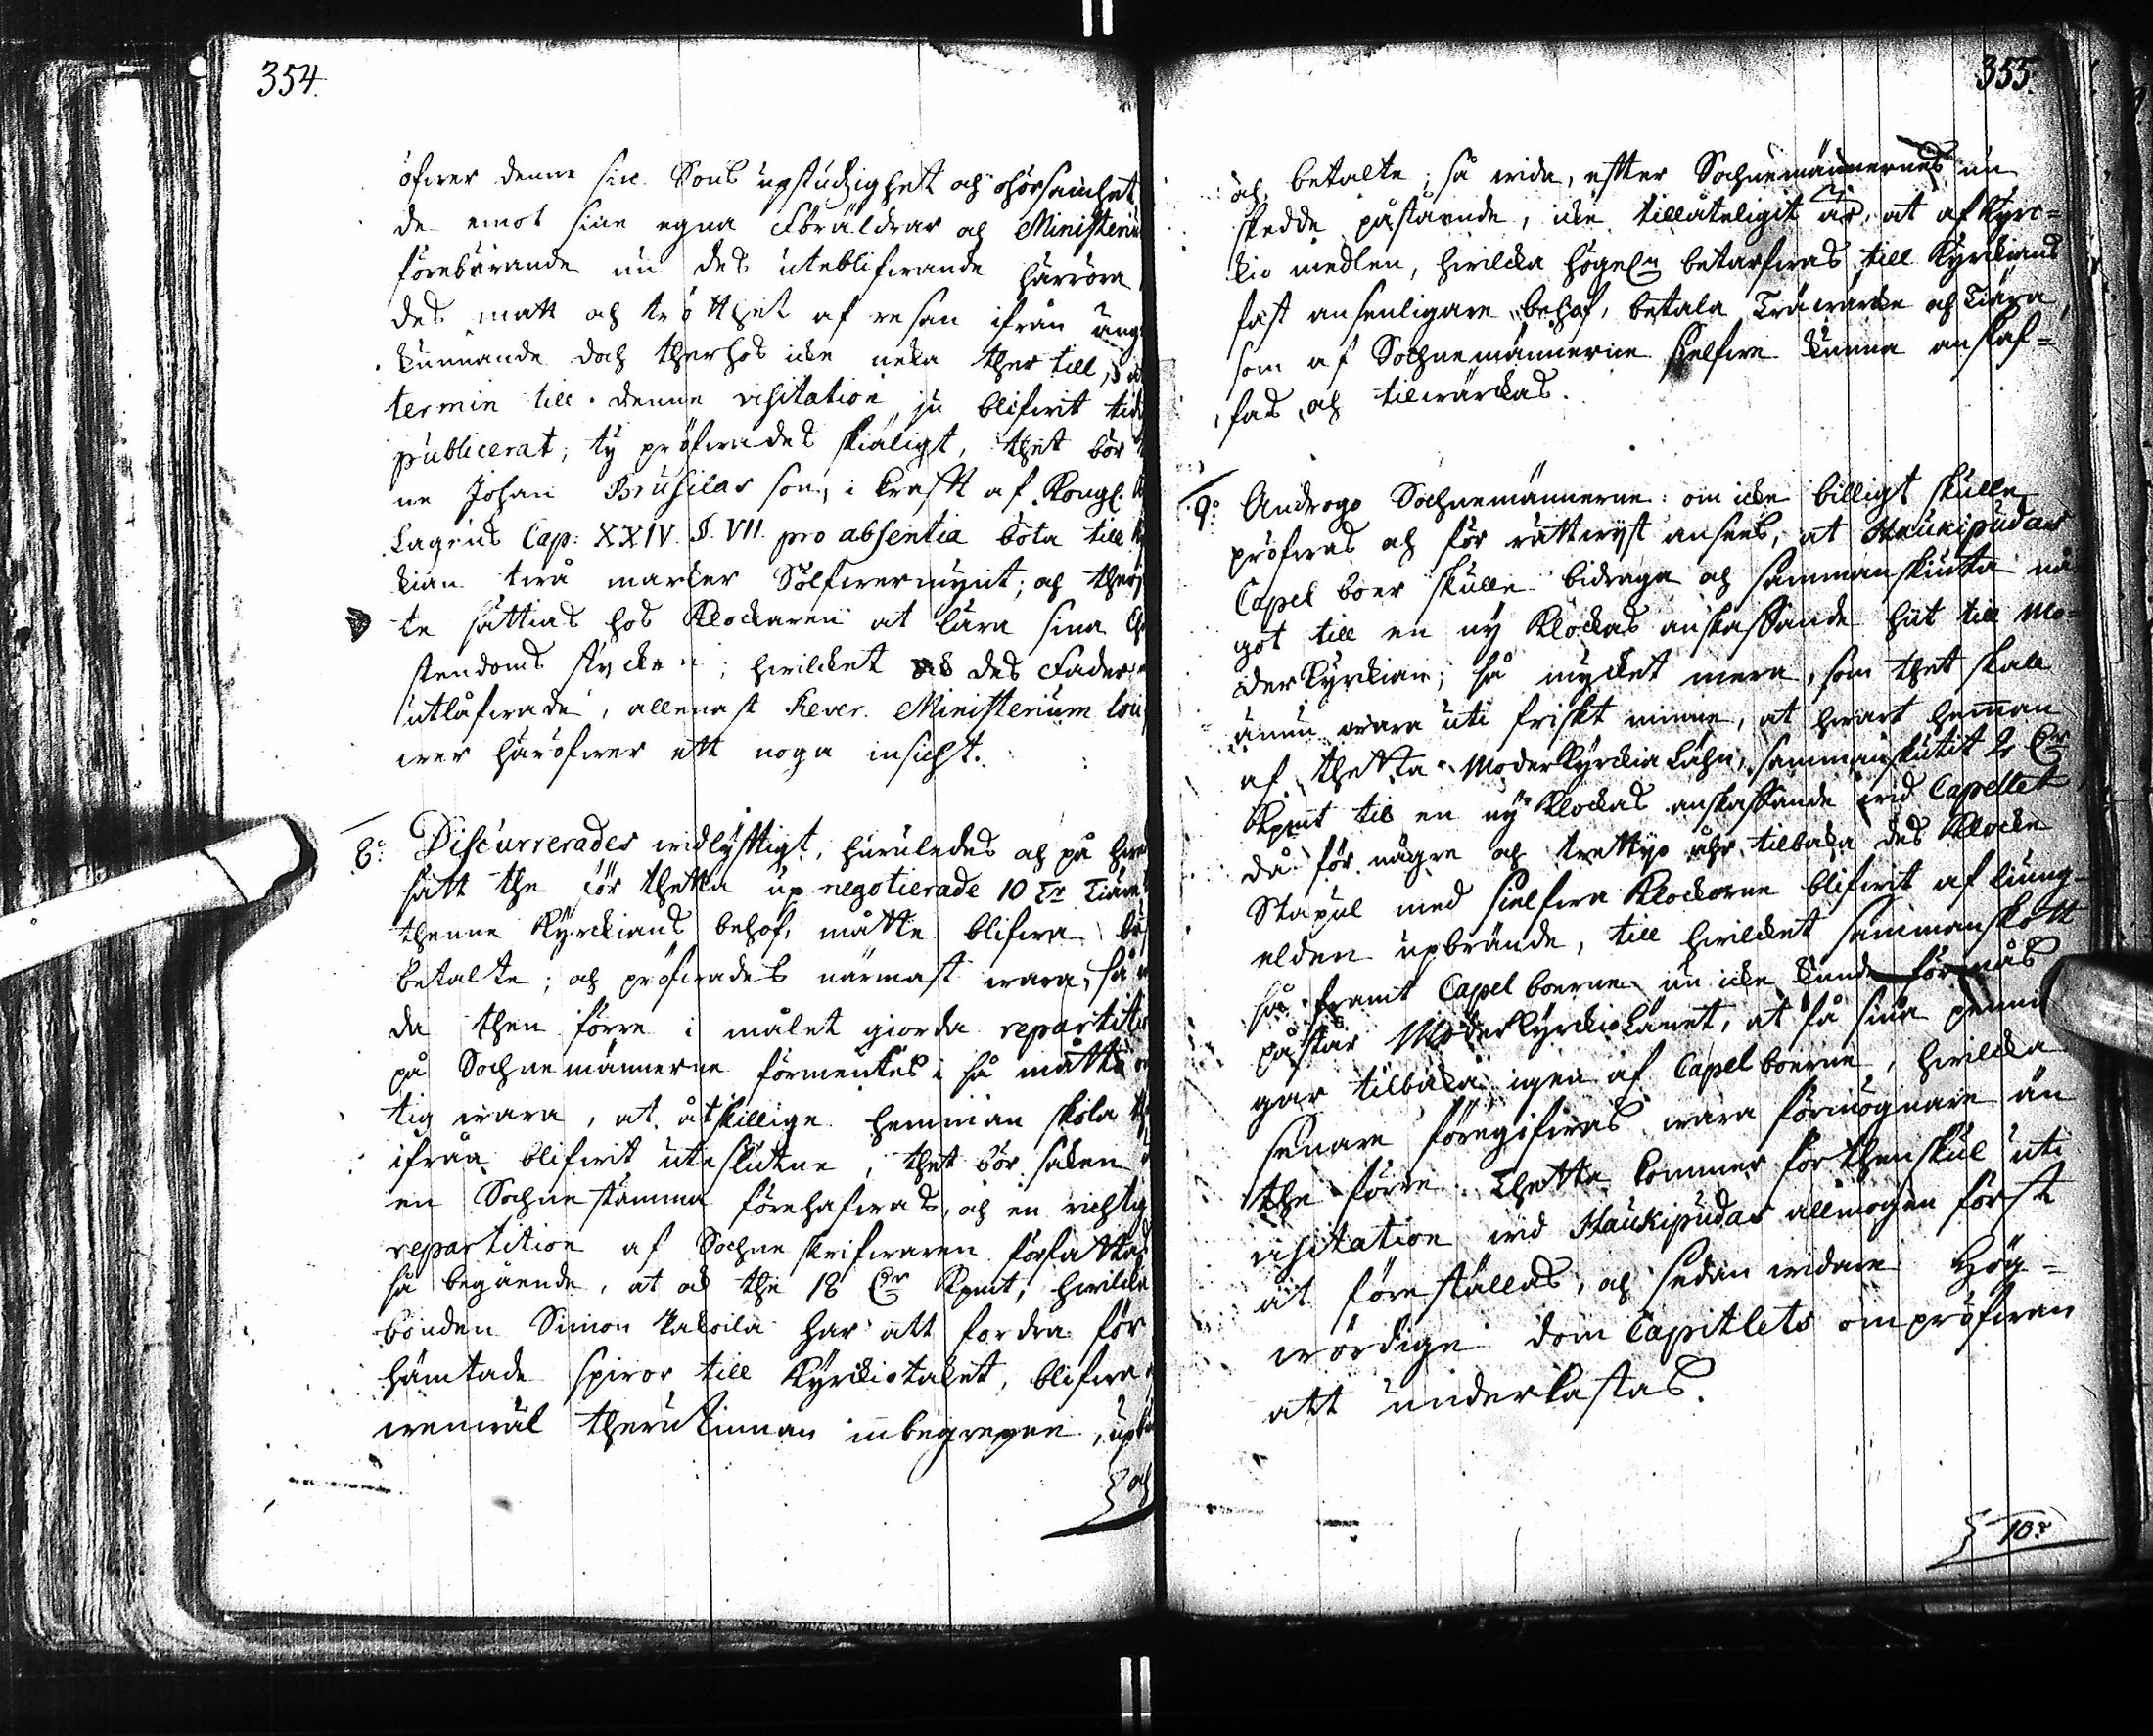 354.
öfwer denne sin Sons upstudzighett och ohörsamhet
de emot sine egna Föräldrar och Ministeriu
förebärande nu des uteblifwande härröra
des matt och trötthet af resan ifrån
kunnande doch therhos icke neka ther till,
termin till denne visitation ju blifwit
publicerat; ty pröfwades skiäligt, thet bör
ne Johan Brusilas son, i krafft af Kongl.
Lagens Cap: XXIV. §. VII. pro absentia böta till
kian twå marker Sölfwermynt; och ther
te sättias hos Klockaren at lära sina
stendoms stycken; hwilcket des Fader
utlåfwade, allenast Rever. Ministerium
wer häröfwer ett noga insicht.
8:o Discurrerades widlyfftigt, huruledes och på
sätt the för thetta up negotierade 10 T:r Tiäru
thenne Kyrckians behof, måtte blifwa
betalte; och pröfwades närmast wara, så
da then förre i målet giorda repartitio
på Sochnemännerne förmentes i så måtto
tig wara, at åtskillige hemman skola
ifrån blifwit uteslutne, thet bör saken
en Sochnestämma förehafwas, och en richtig
repartition af Sochne skrifwaren författas
så begående, at ock the 18 D:r Kpmt, hwilcka
bonden Simon Kakoila har att fordra för
hämtade spiror till Kyrckiotaket, blifwa
wenwäl therutinnan inbegrepne,
och
355.
och betalte; så wida, efter Sochnemännernes nu
skedde påstående, icke tillåteligit är, at af Kyrc=
kio medlen, hwilcka högel:n betarfwas till Kyrckians
fast ansenligare behof, betala Träwärcke och Tiära,
som af Sochnemännerne sielfwe kunna anskaf=
fas och tilwärckas.
9:o Androgo Sochnemännerne: om icke billigt skulle
pröfwas och för rättwyst anses, at Haukipudas
Capel boer skulle bidraga och sammanskiuta nå
got till en ny Klockas anskaffande hit till Mo=
derkyrckian; så mycket mera, som thet skall
ännu wara uti friskt minne, at hwart hemman
af thetta Moderkyrckia Lähn, sammanskutit 2 D:r
Kpmt til en ny Klockas anskaffande wid Capellet,
då för någre och trettyo åhr tilbaka des Klocke
Stapul med sielfwa Klockorne blifwit af liung-
elden upbrände, till hwilcket sammanskott
så framt Capel boerne nu icke kunde förmås
påstår Moderkyrckio Länet, at få sina pennin
gar tilbaka igen af Capel boerne, hwilcka
senare föregifwas wara förmögnare än
the förre. Thetta kommer för thenskul uti
visitation wid Haukipudas allmogen först
at föreställas, och sedan widare Hög=
wördige Dom Capitlets ompröfwan
att underkastas.
10:o